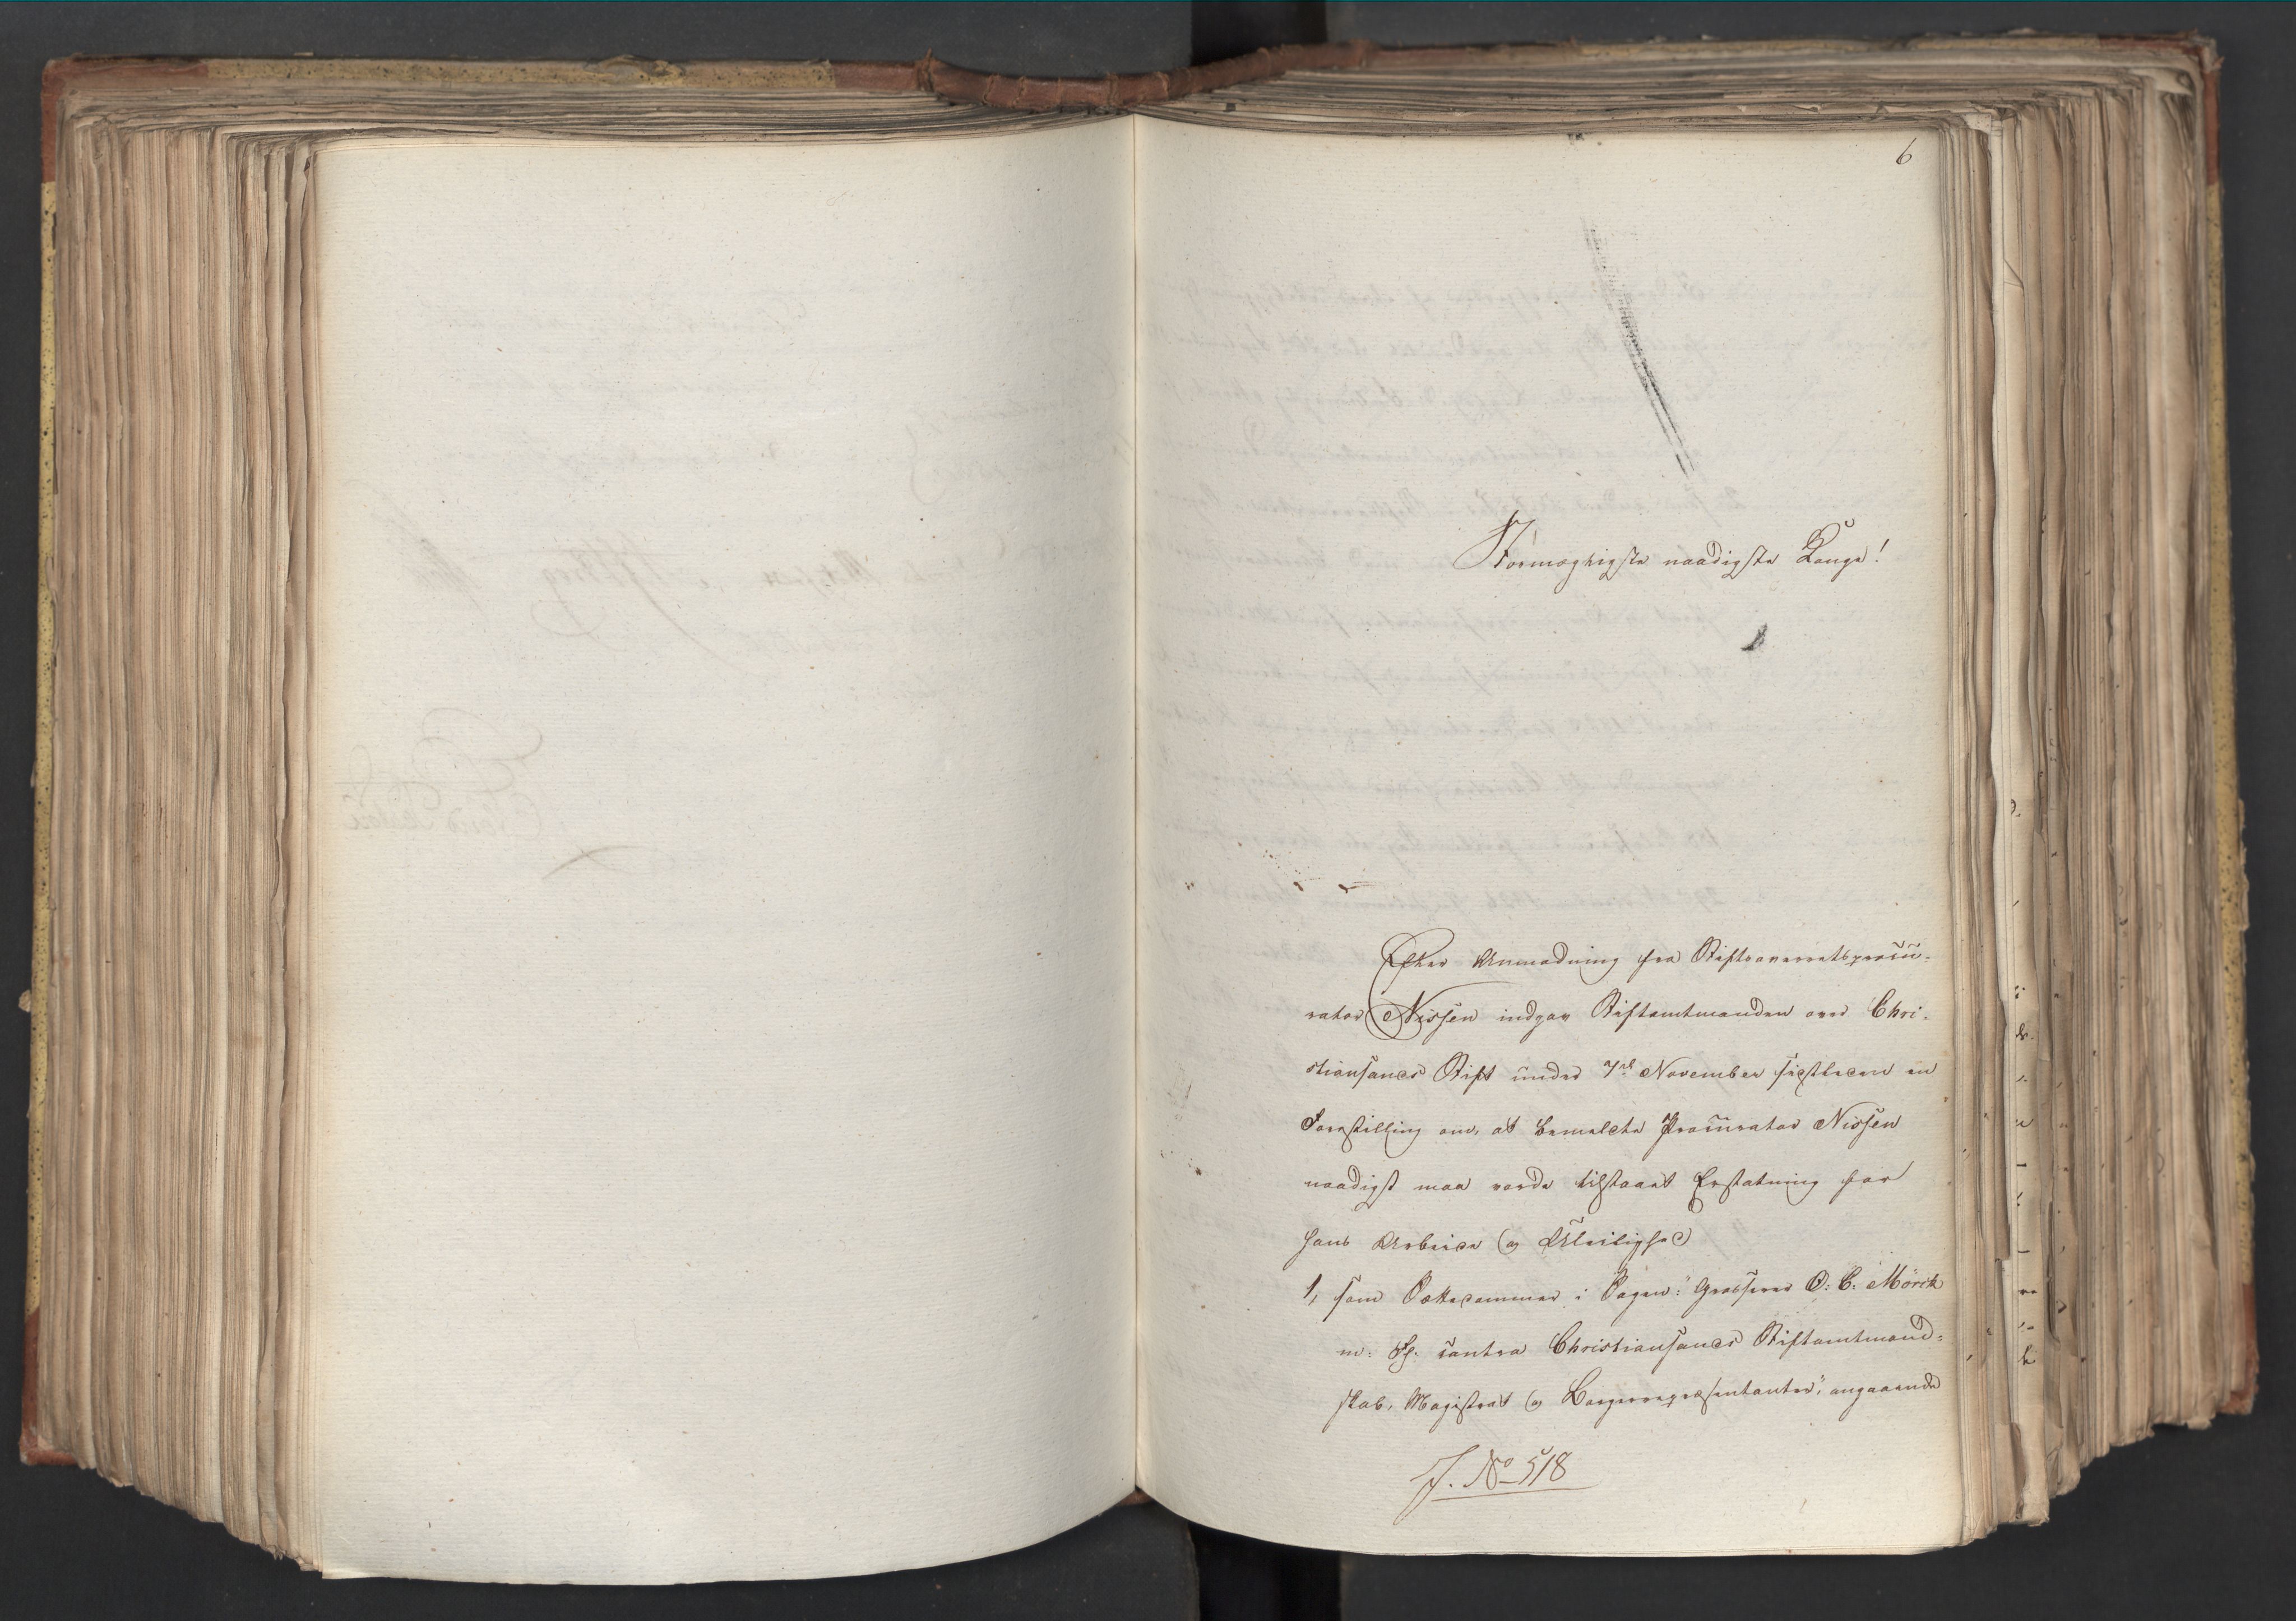 6
Stormægtigste naadigste Konge!
Efter Anmodning fra Stiftsoverretsprocu-
rator Nissen indgav Stiftamtmanden over Chri-
stiansands Stift under 7de November sidstleden en
Forestilling om, at bemeldte Procurator Nissen
naadigst maa vorde tilstaaet Erstatning for
hans Arbeide og Uleilighed
1, som Sættedommer i Sagen: "Grosserer O: C: Mörch
m: Fl. contra Christiansands Stiftamtmand-
skab, Magistrat og Borgerrepræsentanter", angaaende
J. No 518